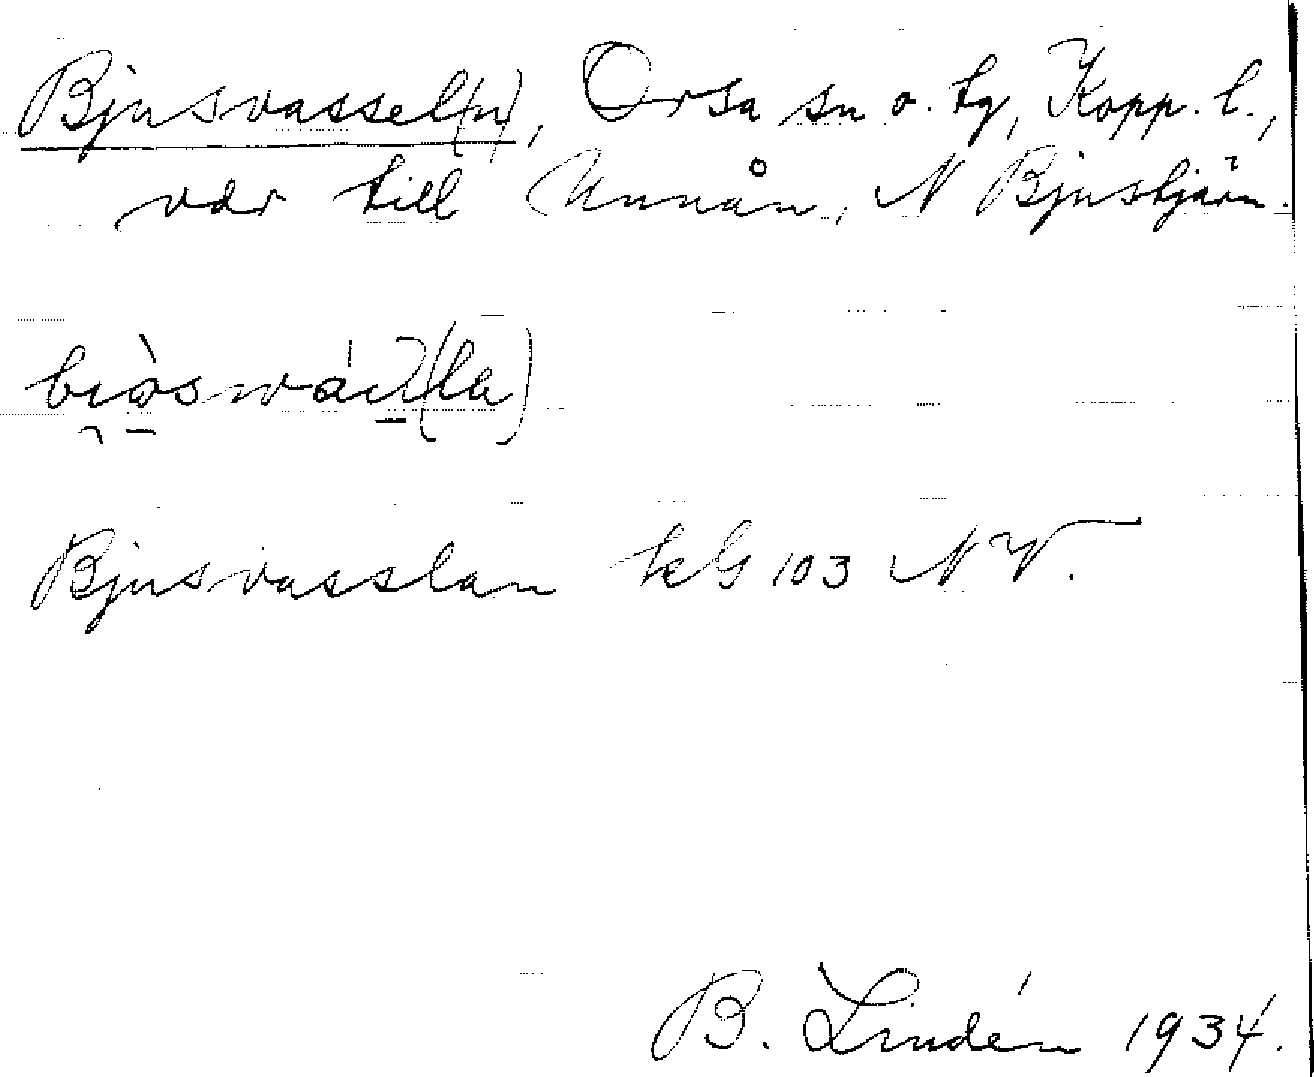 Bjusvassel(n), Orsa sn o. tg, Kopp. l.,
var till Unnån, N Bjustjärn.
Bjusvasslan kG 103 NV.
B. Lindén 1934.